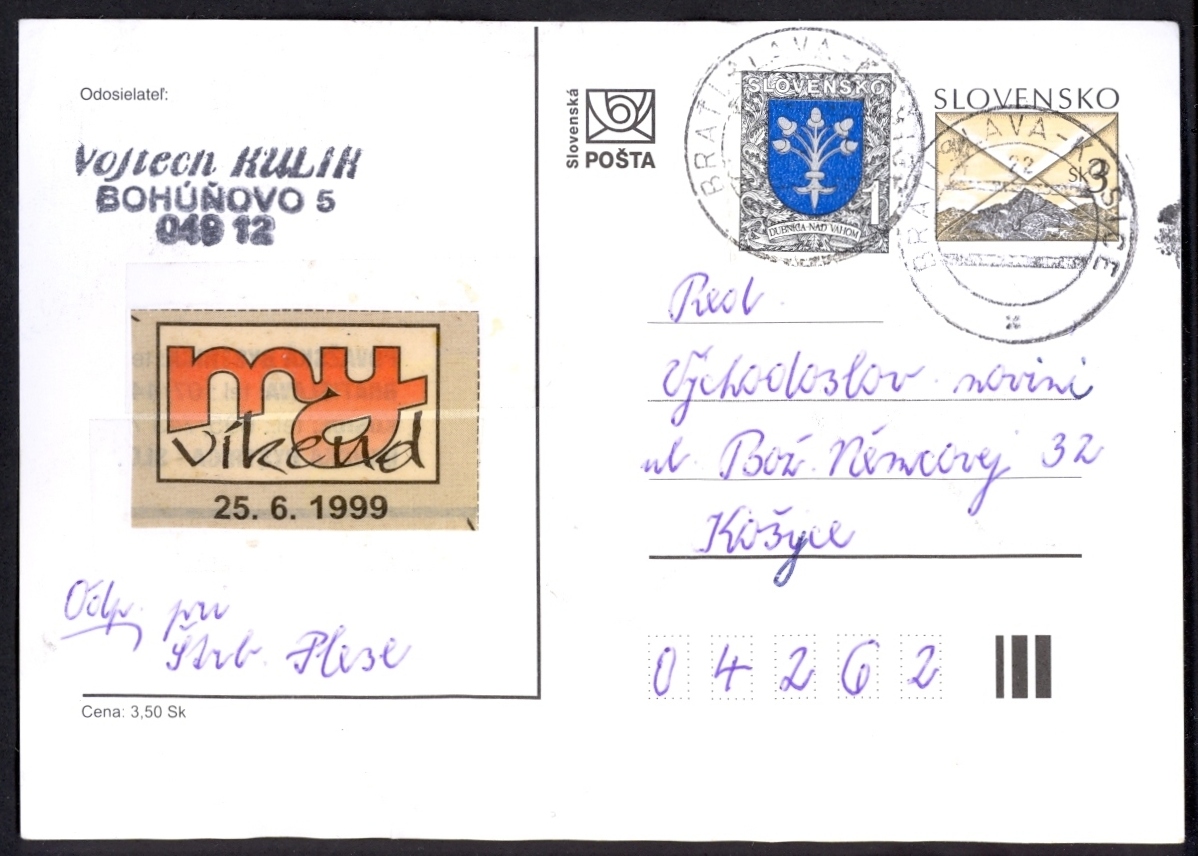 Odosielateľ:
Vojtech KULIK
BOHÚŇOVO 5
049 12
my
víkend
25. 6. 1999
Odp. pri
Štrb. Plese
Cena: 3,50 Sk
Slovenská
POŠTA
SLOVENSKO
1
DUBNICA NAD VÁHOM
SLOVENSKO
Sk 3
BRATISLAVA-KOŠICE
BRATISLAVA-KOŠICE
22
Red.
Východoslov. novini
ul. Bož. Němcovej 32
Košyce
04262